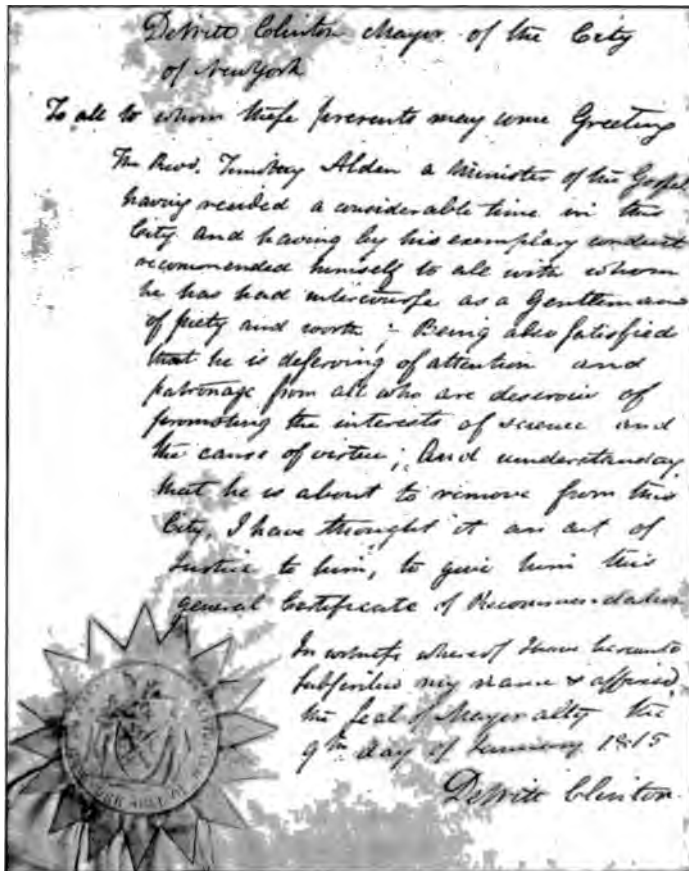 DeWitt Clinton Mayor of the City
of New York
To all to whom these presents may come Greeting
The Revd. Timothy Alden a Minister of the Gospel
having resided a considerable time in this
City and having by his exemplary conduct
recommended himself to all with whom
he has had intercourse as a Gentleman
of piety and worth; - Being also satisfied
that he is deserving of attention and
patronage from all who are desirous of
promoting the interests of science and
the cause of virtue; And understanding
that he is about to remove from this
City, I have thought it an act of
Justice to him, to give him this
general Certificate of Recommendation
In witness whereof I have hereunto
Subscribed my name & affixed
the Seal of Mayoralty the
9th. day of January 1815
DeWitt Clinton